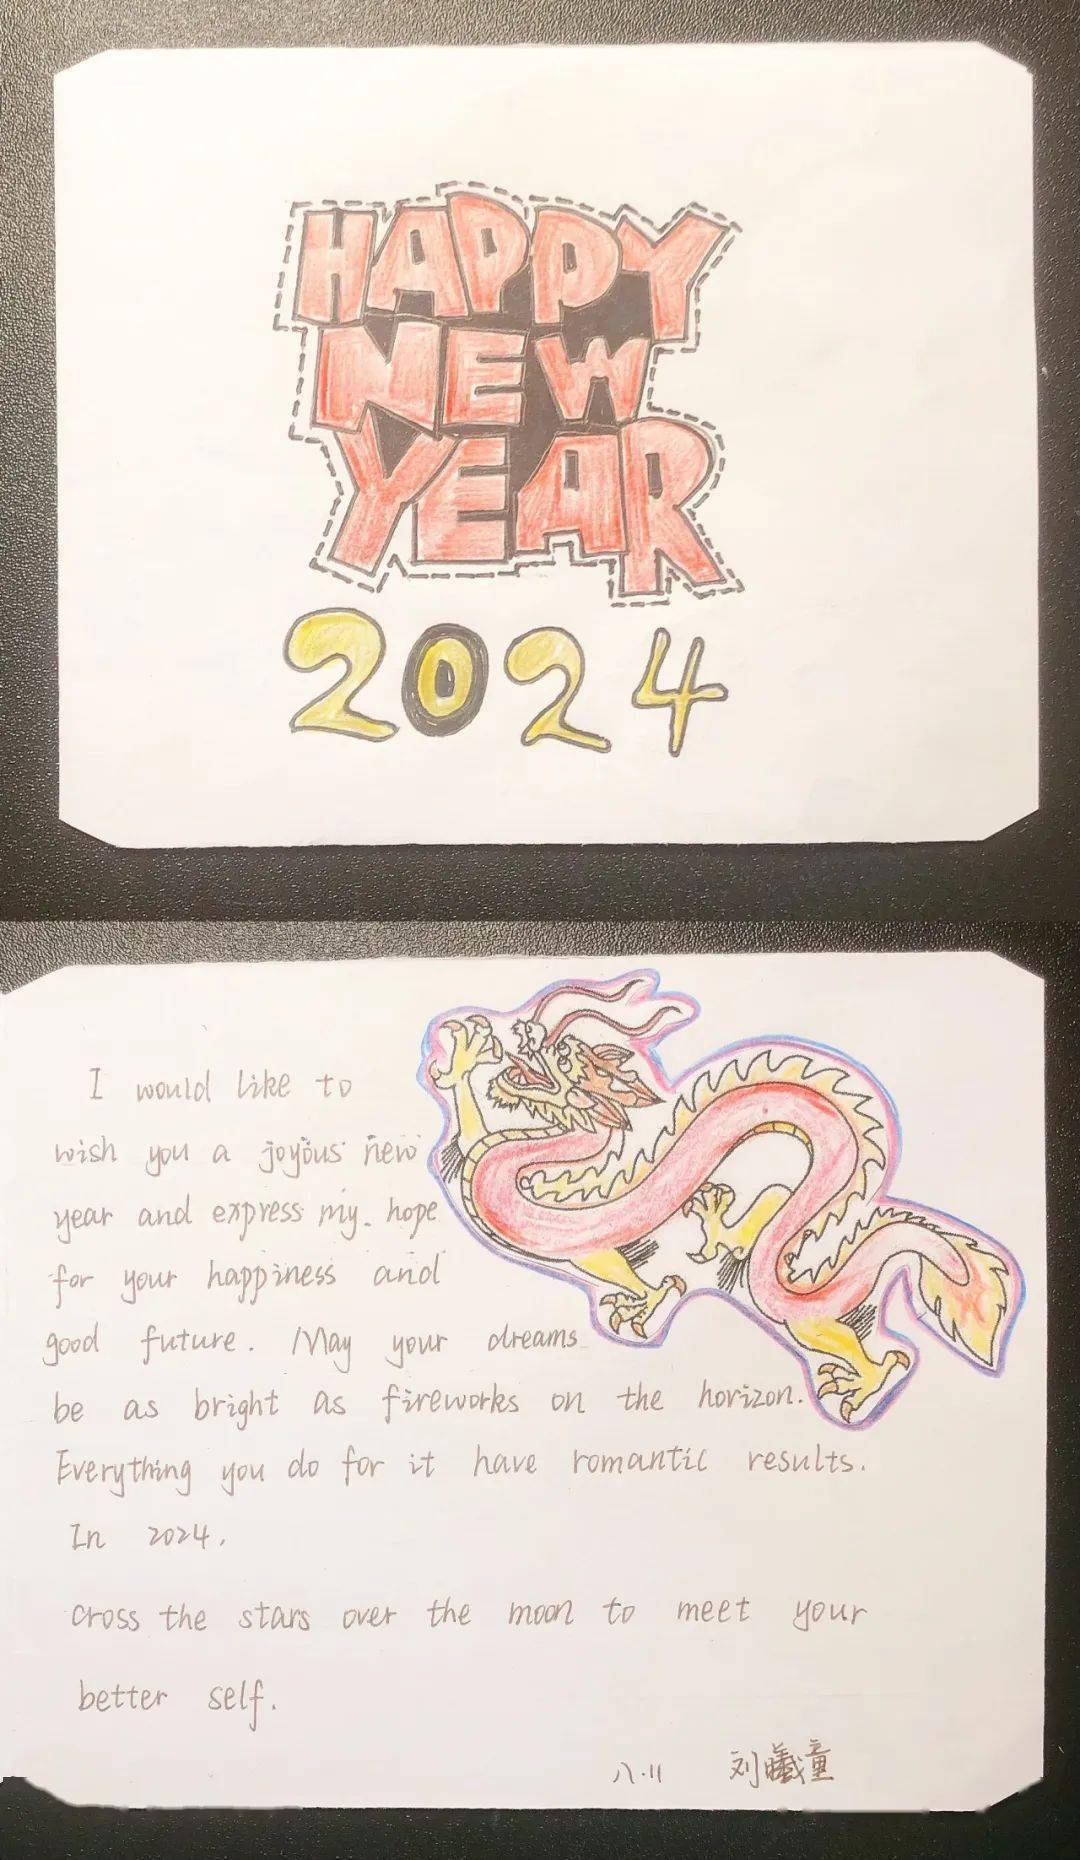 HAPPY
NEW
YEAR
2024
I would like to
wish you a joyous new
year and express my. hope
for your happiness and
good future. May your dreams
be as bright as fireworks on the horizon.
Everything you do for it have romantic results.
In 2024.
cross the stars over the moon to meet your
better self.
八·11 刘曦童